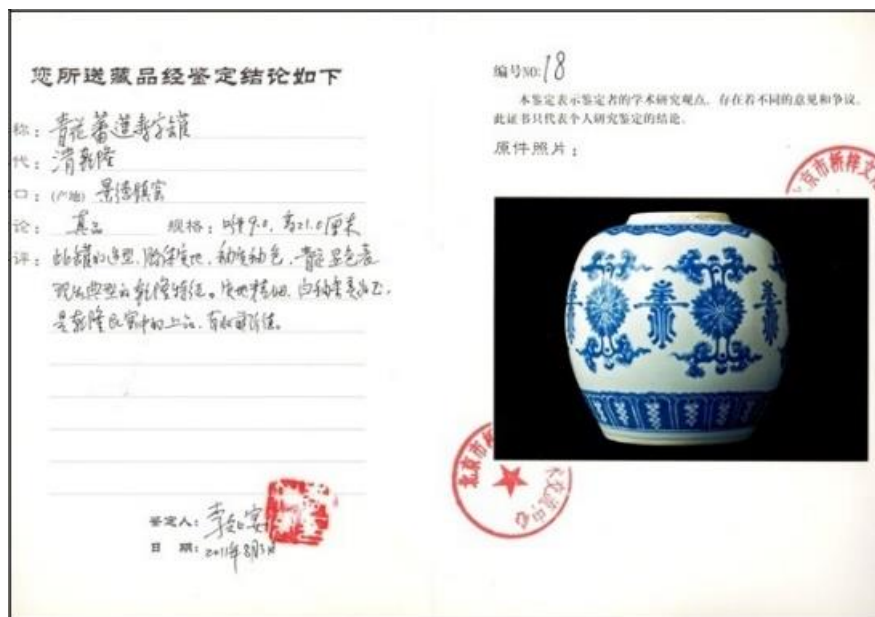 您所送藏品经鉴定结论如下
称：青花蕃莲寿字罐
代：清乾隆
口：(产地) 景德镇窑
论：真品 规格：口径9.0，高21.0厘米
评：此罐的造型、胎体质地、釉质釉色、青花呈色表
现出典型的乾隆特征。质地精细，
是乾隆民窑中的上品，有收藏价值。
鉴定人：
日 期：2011年8月3日
编号NO:18
本鉴定表示鉴定者的学术研究观点，存在着不同的意见和争议。
此证书只代表个人研究鉴定的结论。
原件照片：
京市桥梓文
北京市桥
交流中心